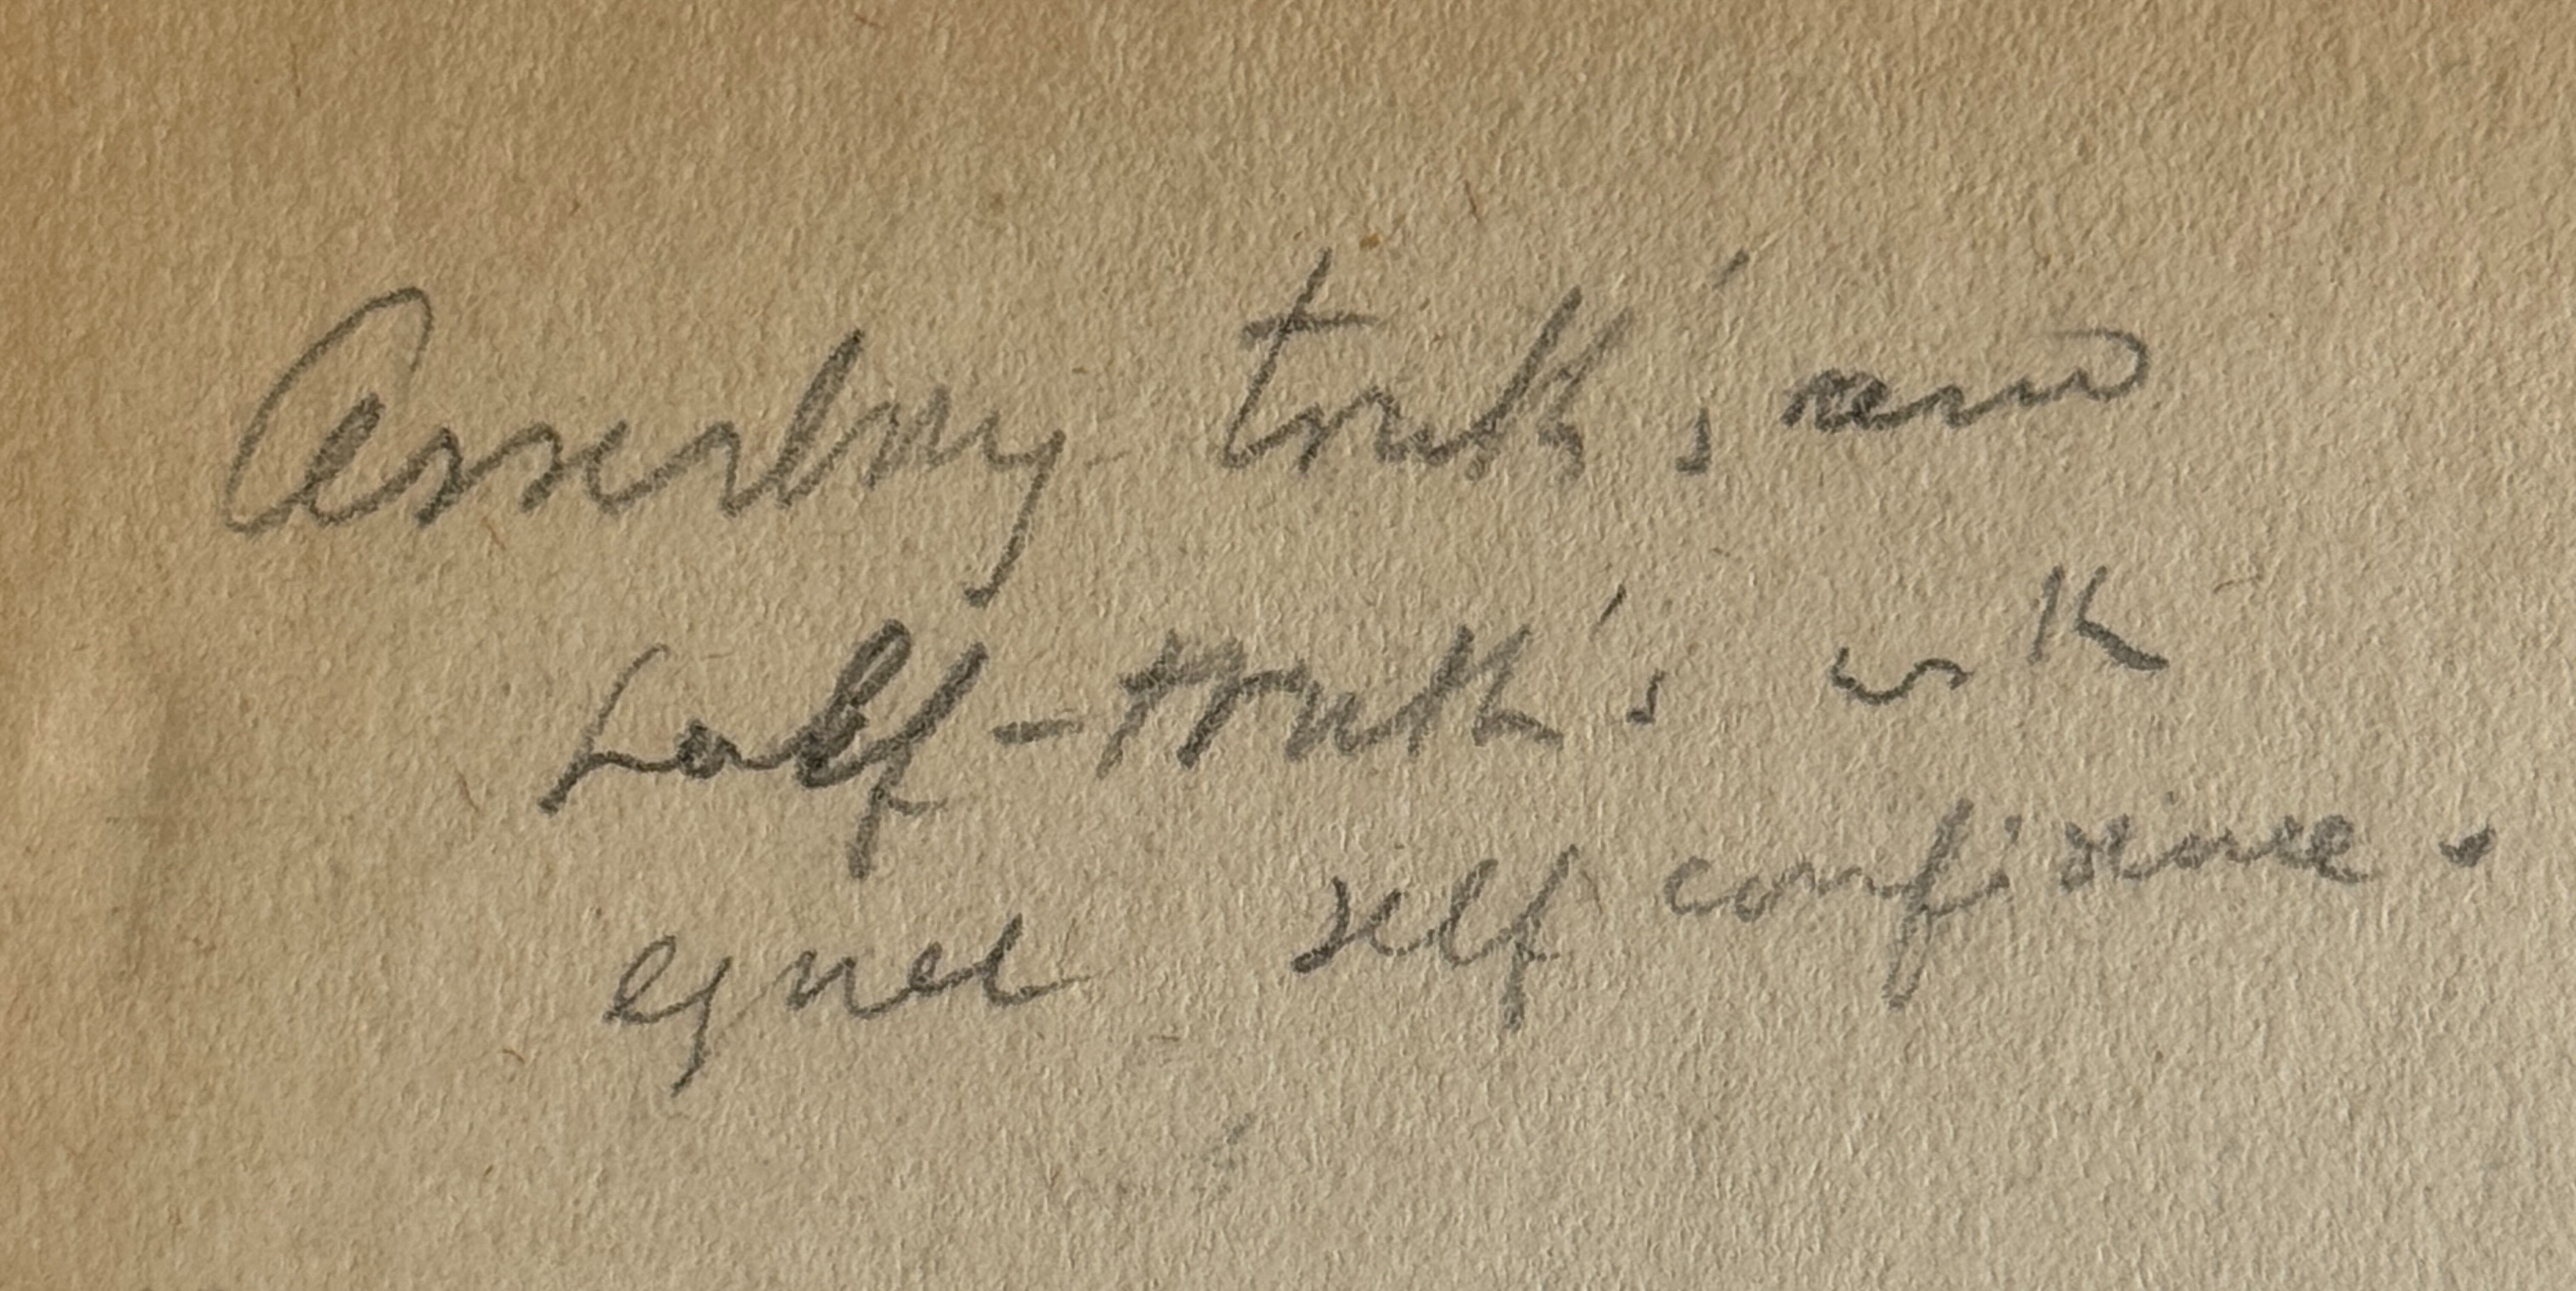 Asserting truth's and
half-truth's with
equal self confidence.